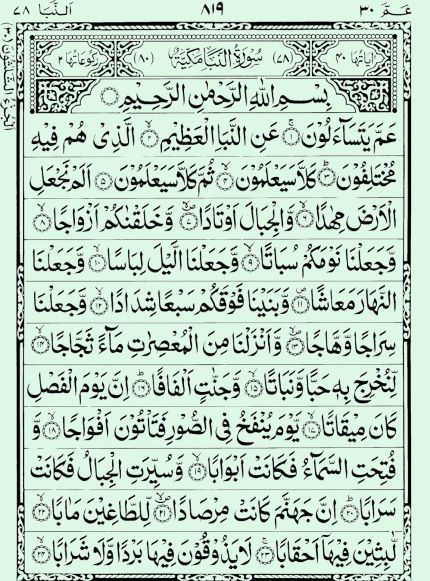 عـمّ ٣٠ ٨١٩ النبا ٧٨
اياتها ٢٠ (٧٨) سورة النبا مكية (٨٠) ركوعاتها ٢
بِسْمِ اللهِ الرَّحْمٰنِ الرَّحِيْمِ
عَمَّ يَتَسَآءَلُوْنَ ۱ عَنِ النَّبَاِ الْعَظِيْمِ ۲ الَّذِىْ هُمْ فِيْهِ
مُخْتَلِفُوْنَ ۳ كَلَّا سَيَعْلَمُوْنَ ۴ ثُمَّ كَلَّا سَيَعْلَمُوْنَ ۵ اَلَمْ نَجْعَلِ
الْاَرْضَ مِهٰدًا ۶ وَّالْجِبَالَ اَوْتَادًا ۷ وَّخَلَقْنٰكُمْ اَزْوَاجًا ۸
وَّجَعَلْنَا نَوْمَكُمْ سُبَاتًا ۹ وَّجَعَلْنَا الَّيْلَ لِبَاسًا ۱۰ وَّجَعَلْنَا
النَّهَارَ مَعَاشًا ۱۱ وَّبَنَيْنَا فَوْقَكُمْ سَبْعًا شِدَادًا ۱۲ وَّجَعَلْنَا
سِرَاجًا وَّهَّاجًا ۱۳ وَّاَنْزَلْنَا مِنَ الْمُعْصِرٰتِ مَآءً ثَجَّاجًا ۱۴
لِّنُخْرِجَ بِهٖ حَبًّا وَّنَبَاتًا ۱۵ وَّجَنّٰتٍ اَلْفَافًا ۱۶ اِنَّ يَوْمَ الْفَصْلِ
كَانَ مِيْقَاتًا ۱۷ يَّوْمَ يُنْفَخُ فِى الصُّوْرِ فَتَاْتُوْنَ اَفْوَاجًا ۱۸ وَّ
فُتِحَتِ السَّمَآءُ فَكَانَتْ اَبْوَابًا ۱۹ وَّسُيِّرَتِ الْجِبَالُ فَكَانَتْ
سَرَابًا ۲۰ اِنَّ جَهَنَّمَ كَانَتْ مِرْصَادًا ۲۱ لِّلطَّاغِيْنَ مَاٰبًا ۲۲
لّٰبِثِيْنَ فِيْهَآ اَحْقَابًا ۲۳ لَا يَذُوْقُوْنَ فِيْهَا بَرْدًا وَّلَا شَرَابًا ۲۴